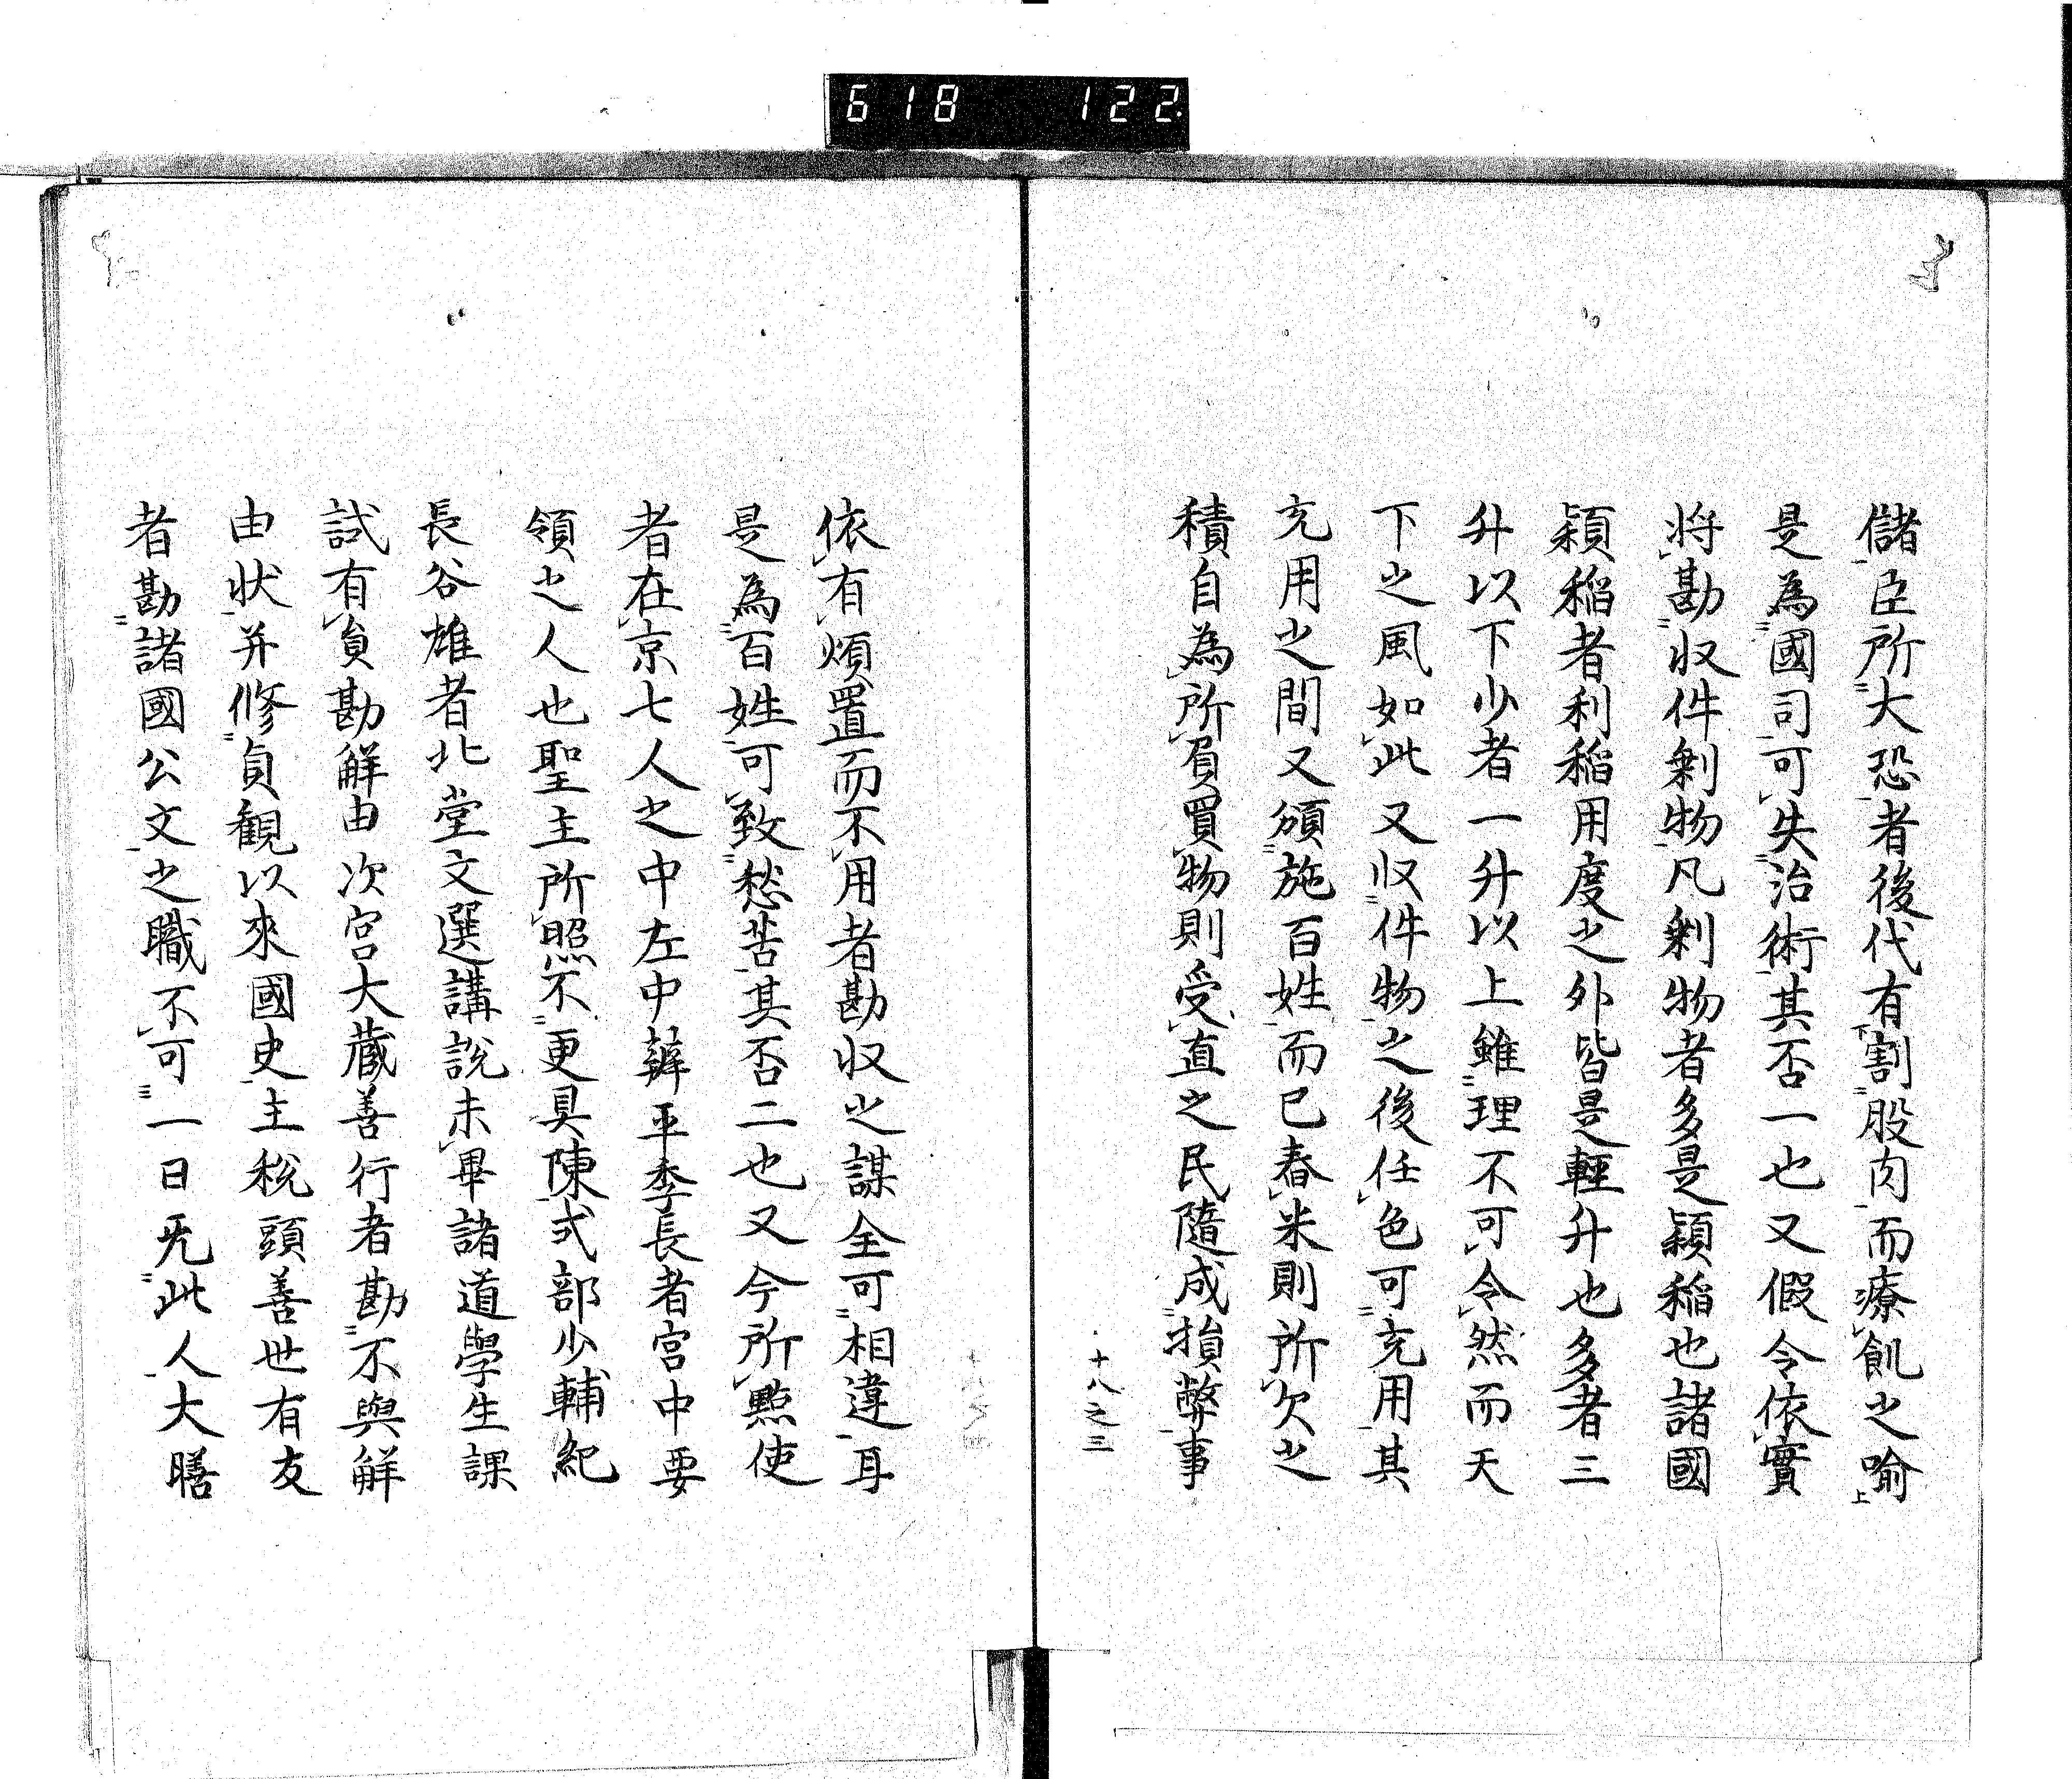 618 122
儲臣所大恐者後代有割股肉而療飢之喻
是為國司可失治術其否一也又假令依實
將勘収件剰物凡剰物者多是穎稲也諸國
穎稲者利稲用度之外皆是輕升也多者三
升以下少者一升以上雖理不可令然而天
下之風如此又収件物之後任色可充用其
充用之間又頒施百姓而已舂米則所欠之
積自為所負買物則受直之民隨成損弊事
十八之三
依有煩置而不用者勘収之謀全可相違耳
是為百姓可致愁苦其否二也又今所點使
者在京七人之中左中辨平季長者宮中要
領之人也聖主所照不更具陳式部少輔紀
長谷雄者北堂文選講説未畢諸道學生課
試有負勘解由次官大蔵善行者勘不與解
由状并修貞観以來國史主税頭善世有友
者勘諸國公文之職不可一日旡此人大膳